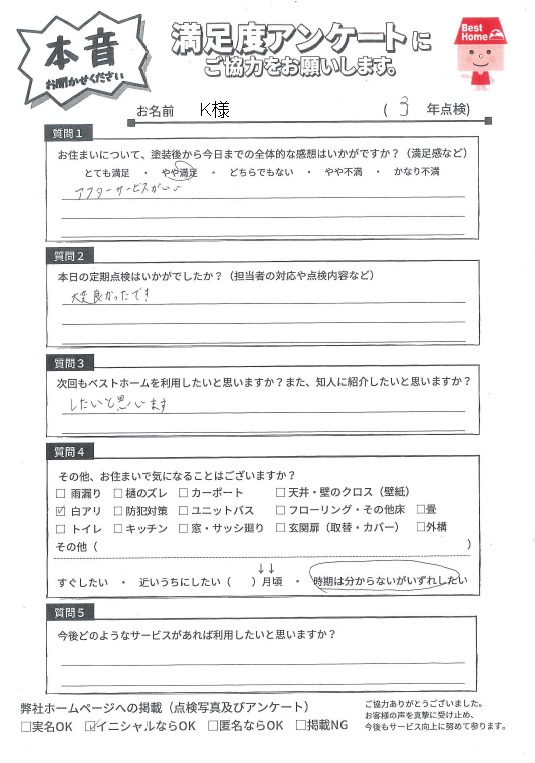 本音
お聞かせください
満足度アンケートに
ご協力をお願いします。
Best Home
お名前 K様 ( 3 年点検)
質問1
お住まいについて、塗装後から今日までの全体的な感想はいかがですか？（満足感など）
とても満足 ・ やや満足 ・ どちらでもない ・ やや不満 ・ かなり不満
アフターサービスがいい
質問2
本日の定期点検はいかがでしたか？（担当者の対応や点検内容など）
大変良かったです
質問3
次回もベストホームを利用したいと思いますか？また、知人に紹介したいと思いますか？
したいと思います
質問4
その他、お住まいで気になることはございますか？
□ 雨漏り □ 樋のズレ □ カーポート □ 天井・壁のクロス（壁紙）
☑ 白アリ □ 防犯対策 □ ユニットバス □ フローリング・その他床 □畳
□ トイレ □ キッチン □ 窓・サッシ廻り □ 玄関扉（取替・カバー） □外構
その他（ ）
↓↓
すぐしたい ・ 近いうちにしたい（ ）月頃 ・ 時期は分からないがいずれしたい
質問5
今後どのようなサービスがあれば利用したいと思いますか？
弊社ホームページへの掲載（点検写真及びアンケート）
□実名OK ☑イニシャルならOK □匿名ならOK □掲載NG
ご協力ありがとうございました。
お客様の声を真摯に受け止め、
今後もサービス向上に努めて参ります。